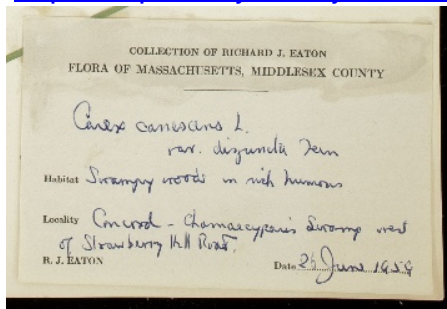 COLLECTION OF RICHARD J. EATON
FLORA OF MASSACHUSETTS, MIDDLESEX COUNTY
Carex canescens L.
var. disjuncta Fern
Habitat Swampy woods in rich humous
Locality Concord - Chamaecyparis Swamp west
of Strawberry Hill Road.
R. J. EATON Date 26 June 1959